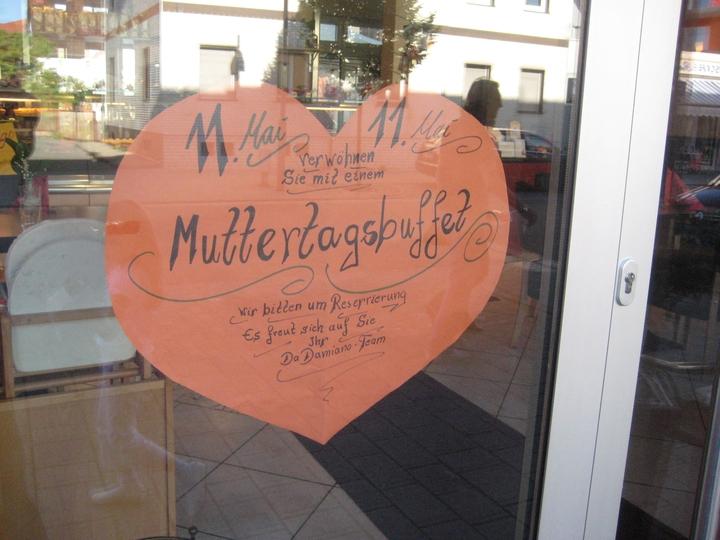 11. Mai 11. Mai
verwöhnen
Sie mit einem
Muttertagsbuffet
wir bitten um Reservierung
Es freut sich auf Sie
Ihr
DaDamiano-Team